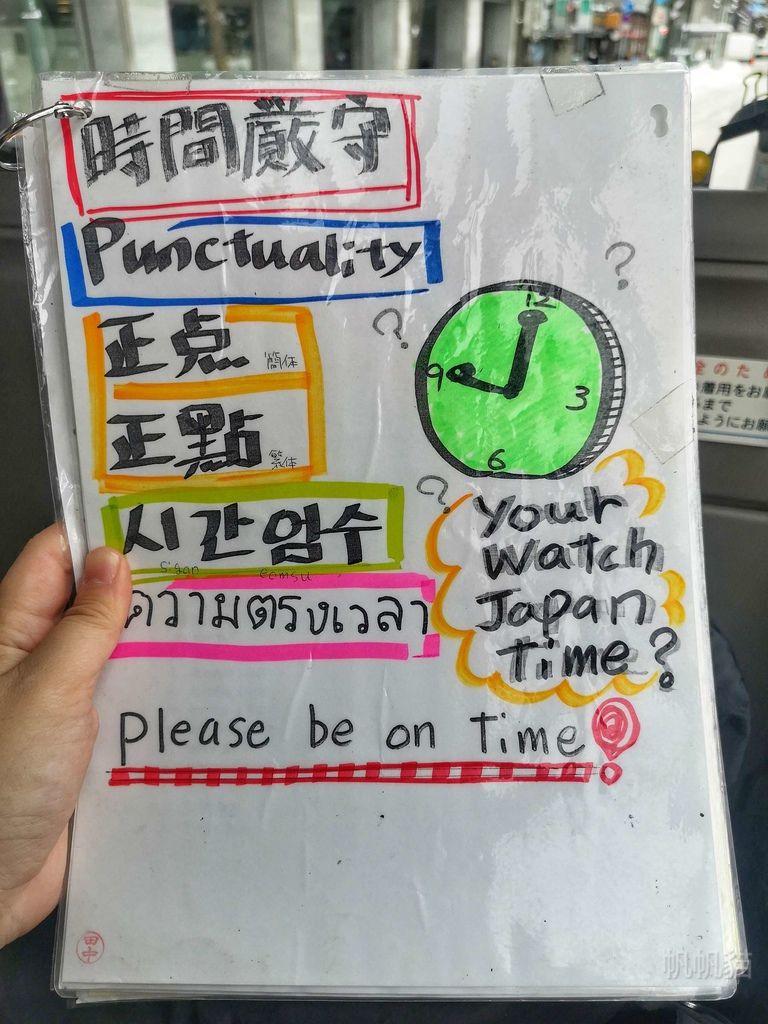 時間厳守
Punctuality
正点 简体
正點 繁体
시간 엄수
sigan eomsu
ความตรงเวลา
12
9
3
6
?
?
?
Your
Watch
Japan
Time?
Please be on Time!
田中
帆帆貓
着用をお願
まで
ようにお願